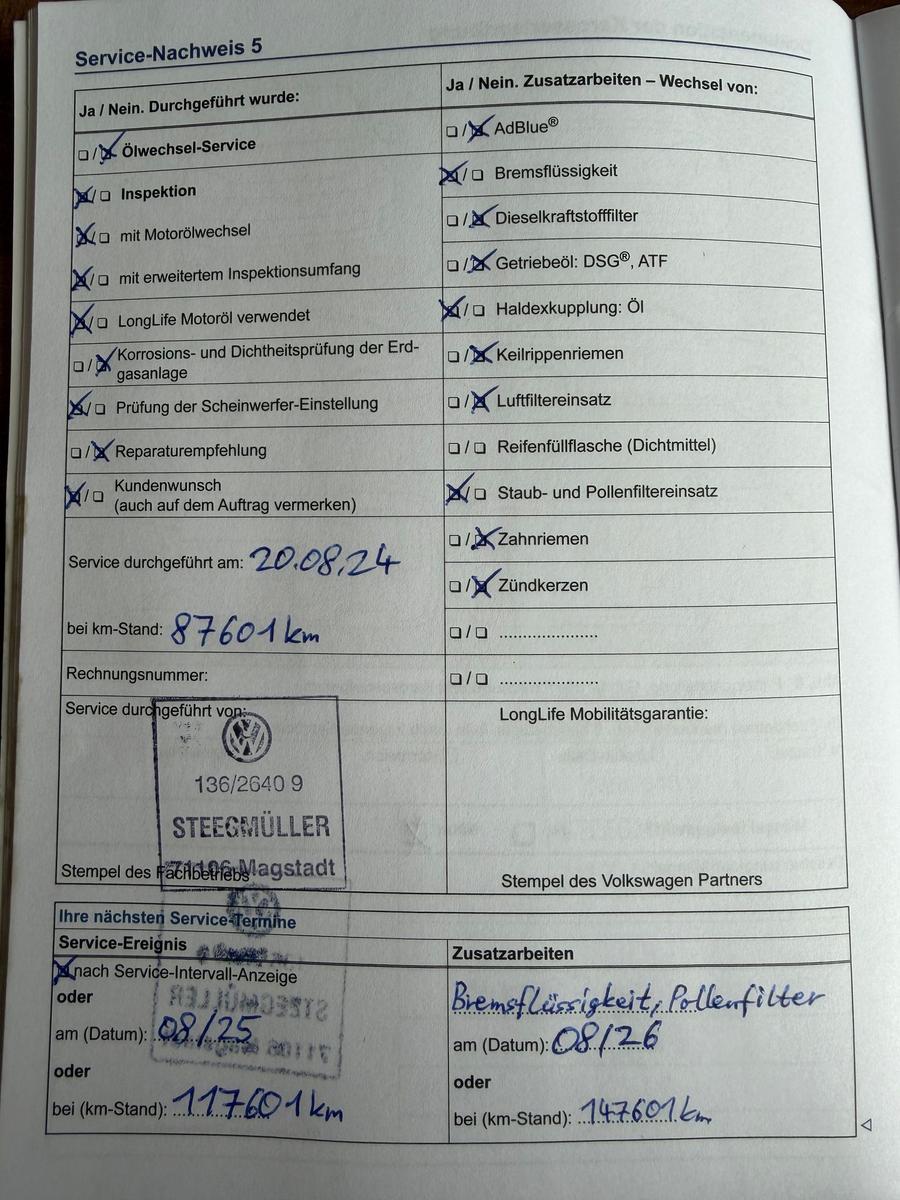 Service-Nachweis 5
Ja / Nein. Durchgeführt wurde:
☐/☒ Ölwechsel-Service
☒/☐ Inspektion
☒/☐ mit Motorölwechsel
☒/☐ mit erweitertem Inspektionsumfang
☒/☐ LongLife Motoröl verwendet
☐/☒ Korrosions- und Dichtheitsprüfung der Erd-
gasanlage
☒/☐ Prüfung der Scheinwerfer-Einstellung
☐/☒ Reparaturempfehlung
☒/☐ Kundenwunsch
(auch auf dem Auftrag vermerken)
Service durchgeführt am: 20.08.24
bei km-Stand: 87601 km
Rechnungsnummer:
Service durchgeführt von:
136/2640 9
STEEGMÜLLER
71106 Magstadt
Stempel des Fachbetriebs
Ja / Nein. Zusatzarbeiten – Wechsel von:
☐/☒ AdBlue®
☒/☐ Bremsflüssigkeit
☐/☒ Dieselkraftstofffilter
☐/☒ Getriebeöl: DSG®, ATF
☒/☐ Haldexkupplung: Öl
☐/☒ Keilrippenriemen
☐/☒ Luftfiltereinsatz
☐/☐ Reifenfüllflasche (Dichtmittel)
☒/☐ Staub- und Pollenfiltereinsatz
☐/☒ Zahnriemen
☐/☒ Zündkerzen
☐/☐ .....................
☐/☐ .....................
LongLife Mobilitätsgarantie:
Stempel des Volkswagen Partners
Ihre nächsten Service-Termine
Service-Ereignis
☒ nach Service-Intervall-Anzeige
oder
am (Datum): 08/25
oder
bei (km-Stand): 117601 km
Zusatzarbeiten
Bremsflüssigkeit, Pollenfilter
am (Datum): 08/26
oder
bei (km-Stand): 147601 km